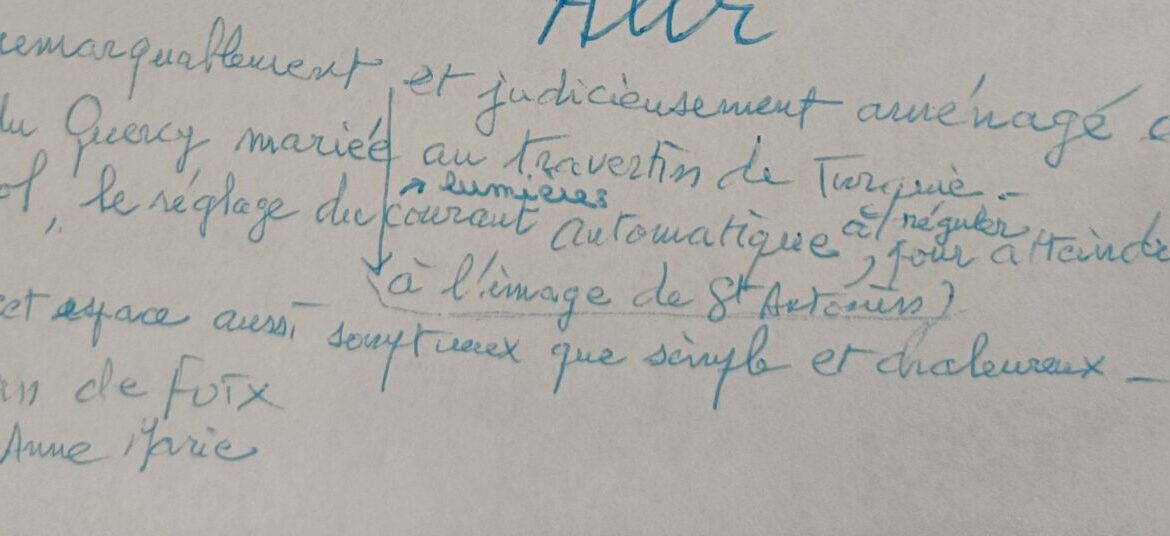 remarquablement et judicieusement aménagé
du Quercy mariée au travertin de Turquie.-
lumières
le réglage du courant automatique à réguler, pour atteindre
à l'image de St Antonin)
cet espace aussi somptueux que simple et chaleureux -
de Foix
Anne Marie